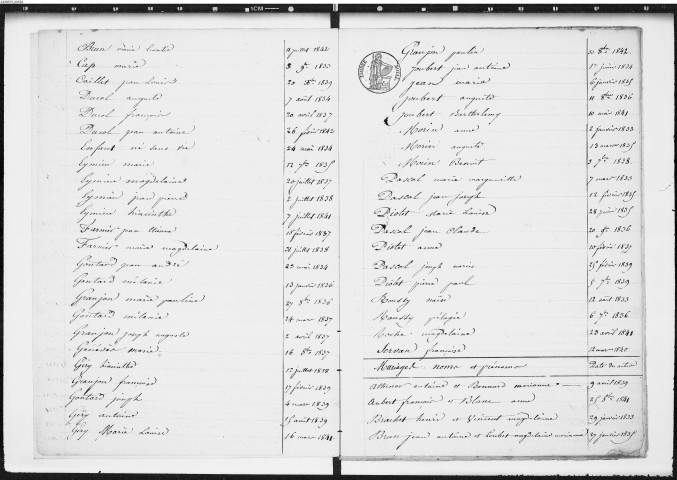 Brun 11 juillet 1842
Cup marie 3 9bre 1833
Caillet jean louis 20 1839
Ducol auguste 7 août 1834
Ducol françois 20 avril 1837
Ducol jean antoine 26 février 1842
Enfant né sans vie 24 mai 1834
Eymieu marie 12 7bre 1835
Eymieu magdelaine 20 juillet 1837
jean pierre 2 juillet 1838
Eymieu hiacinthe 7 juillet 1841
Farnier 18 février 1837
Farnier marie magdelaine 21 juillet 1838
Goutard jean andré 27 mai 1834
Goutard mélanie 13 janvier 1836
Granjon marie pauline 27 8bre 1836
Goutard mélanie 24 mars 1837
Granjon joseph auguste 2 avril 1837
marie 16 8bre 1837
Giry hiacinthe 12 juillet 1838
Granjon 17 février 1839
Goutard joseph 4 mars 1839
Giry antoine 15 août 1839
Giry Marie Louise 16 mars 1841
Granjon paulin 31 8bre 1842
Joubert jean antoine 1er juin 1834
jean marie 6 janvier 1835
Joubert auguste 11 8bre 1836
Joubert Barthelemy 10 mai 1841
Morin anne 2 janvier 1833
Morin auguste 13 mars 1835
Morin Benoit 3 7bre 1838
Pascal maria marguerite 7 mars 1833
Pascal jean joseph 12 février 1835
Diolet Marie Louise 28 juin 1835
Pascal jean claude 20 8bre 1836
Diolet anne 10 février 1837
Pascal joseph marius 25 février 1839
Diolet pierre paul 5 7bre 1839
Rousty 12 août 1833
Rousty pélagie 6 7bre 1836
Roche magdelaine 23 avril 1841
françoise mars 1840
Mariages noms et prénoms Date des actes
antoine et Bonnard marianne 9 avril 1839
Aubert francois et Blanc anne 25 8bre 1841
Brachet henri et Vincent magdelaine 29 janvier 1833
Brun jean antoine et Loubet magdelaine marianne 27 janvier 1835